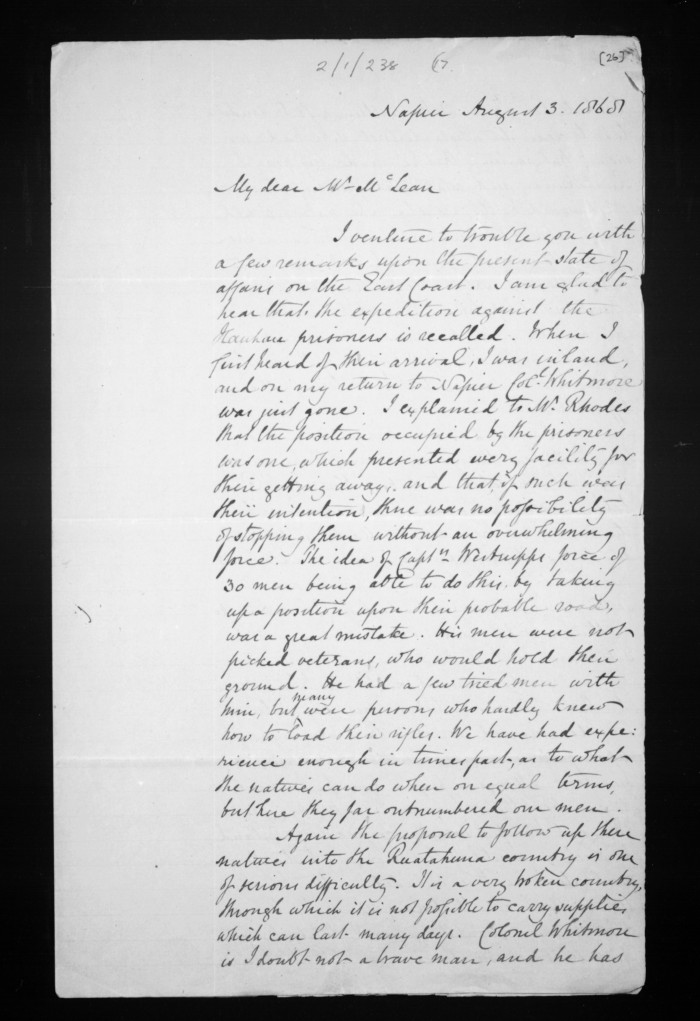 2/1/238 67.
[26]
Napier August 3. 1868
My dear Mr McLean
I venture to trouble you with
a few remarks upon the present state of
affairs on the East Coast. I am glad to
hear that the expedition against the
Hauhau prisoners is recalled. When I
first heard of their arrival, I was inland,
and on my return to Napier Col. Whitmore
was just gone. I explained to Mr. Rhodes
that the position occupied by the prisoners
was one, which presented every facility for
their getting away, and that, if such were
their intention, there was no possibility
of stopping them without an overwhelming
force. The idea of Captn Westrupps force of
30 men being able to do this by taking
up a position upon their probable road,
was a great mistake. His men were not
picked veterans, who would hold their
ground. He had a few tried men with
him, but many were persons who hardly knew
how to load their rifles. We have had expe:
rience enough in times past, as to what
the natives can do when on equal terms,
but here they far outnumbered our men.
Again the proposal to follow up these
natives into the Ruatahuna country is one
of serious difficulty. It is a very broken country,
through which it is not possible to carry supplies
which can last many days. Colonel Whitmore
is I doubt not a brave man, and he has